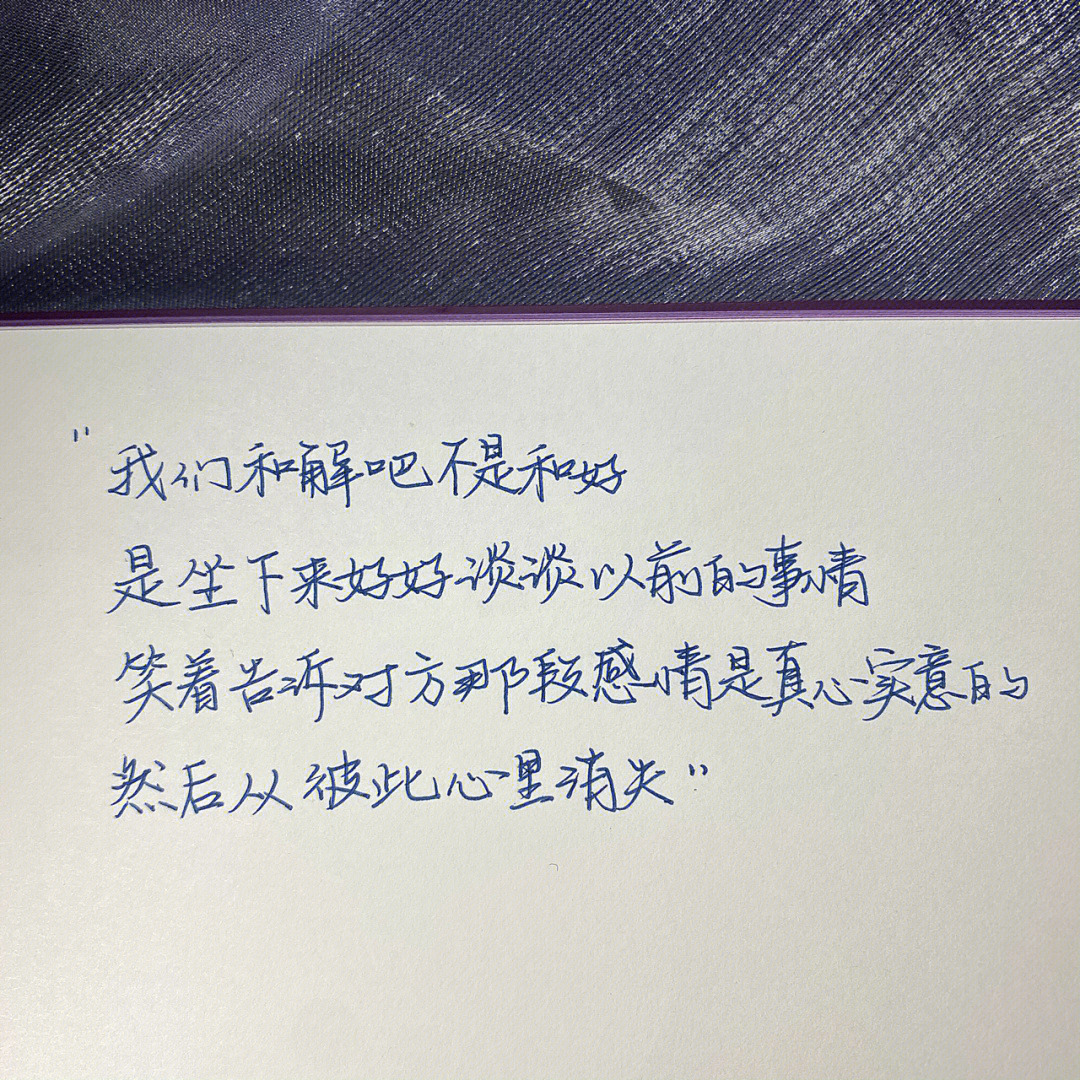 "我们和解吧不是和好
是坐下来好好谈谈以前的事情
笑着告诉对方那段感情是真心实意的
然后从彼此心里消失"